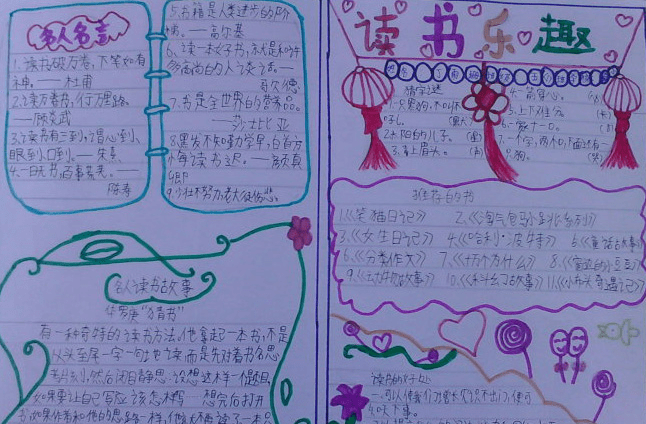 名人名言
1.读书破万卷，下笔如有
神。——杜甫
2.读万卷书，行万里路。
——顾炎武
3.读书有三到，谓心到、
眼到、口到。——朱熹
4.一日无书，百事荒芜。——
陈寿
5.书籍是人类进步的阶
梯。——高尔基
6.读一本好书，就是和许
多高尚的人谈话。——
歌德
7.书是全世界的营养品。
——莎士比亚
8.黑发不知勤学早，白首方
悔读书迟。——颜真
卿
9.少壮不努力，老大徒伤悲。
名人读书故事
华罗庚“猜书”
有一种奇特的读书方法，他拿起一本书，不是
从头至尾一字一句地读，而是先对着书名思
然后闭目静思：设想这样一个题目，
如果要让自己写应该怎样写
想完后打开
书，如果作者和他的思路一样，他就不再读了
读书乐趣
猜字谜
1.一只黑狗，不叫
2.太阳的儿子。
3.上下难分。
推荐的书
1.《笑猫日记》 2.《淘气包马小跳系列》
3.《女生日记》 4.《哈利·波特》 5.《童话故事》
6.《分类作文》 7.《十万个为什么》 8.《窗边的小豆豆》
10.《科幻故事》 11.《小布头奇遇记》
读书的好处
1.可以使我们增长知识，不出门，便可
知天下事。